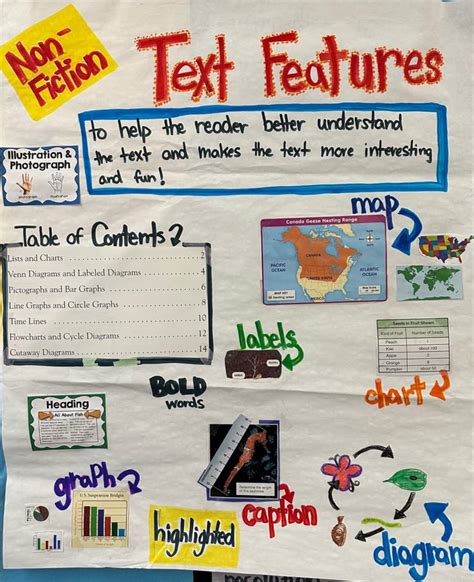 Non-
Fiction
Text Features
to help the reader better understand
the text and makes the text more interesting
and fun!
Illustration &
Photograph
photograph
illustration
map
Canada Geese Nesting Range
CANADA
PACIFIC
OCEAN
ATLANTIC
OCEAN
UNITED
STATES
MAP KEY
Nesting areas
MEXICO
Table of Contents
Lists and Charts 2
Venn Diagrams and Labeled Diagrams 4
Pictographs and Bar Graphs 6
Line Graphs and Circle Graphs 8
Time Lines 10
Flowcharts and Cycle Diagrams 12
Cutaway Diagrams 14
labels
Seeds in Fruit Shown
Kind of Fruit Number of Seeds
Peach 1
Kiwi about 100
Apple
Orange
Pumpkin
chart
BOLD
words
Heading
All About Fish
graph
U.S. Suspension Bridges
highlighted
Determine the length
caption
diagram